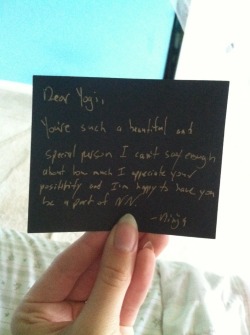 Dear Yogi,
You're such a beautiful and
special person I can't say enough
about how much I appreciate your
positivity and I'm happy to have you
be a part of NN.
- Ninja